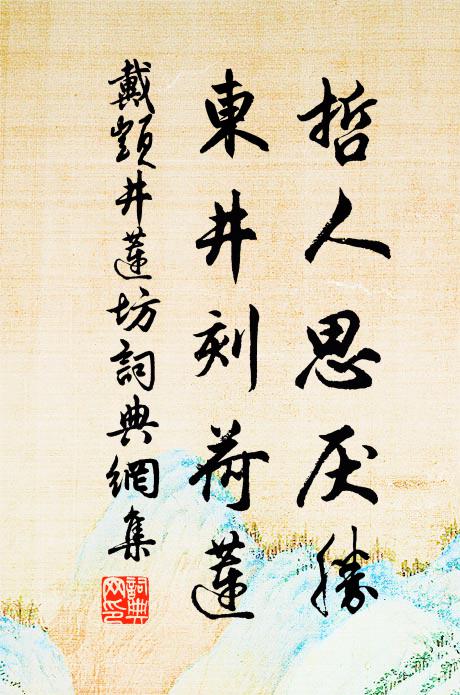 哲人思厌勝
東井刻荷蓮
戴顗井蓮坊詞典網集
詞典
网印